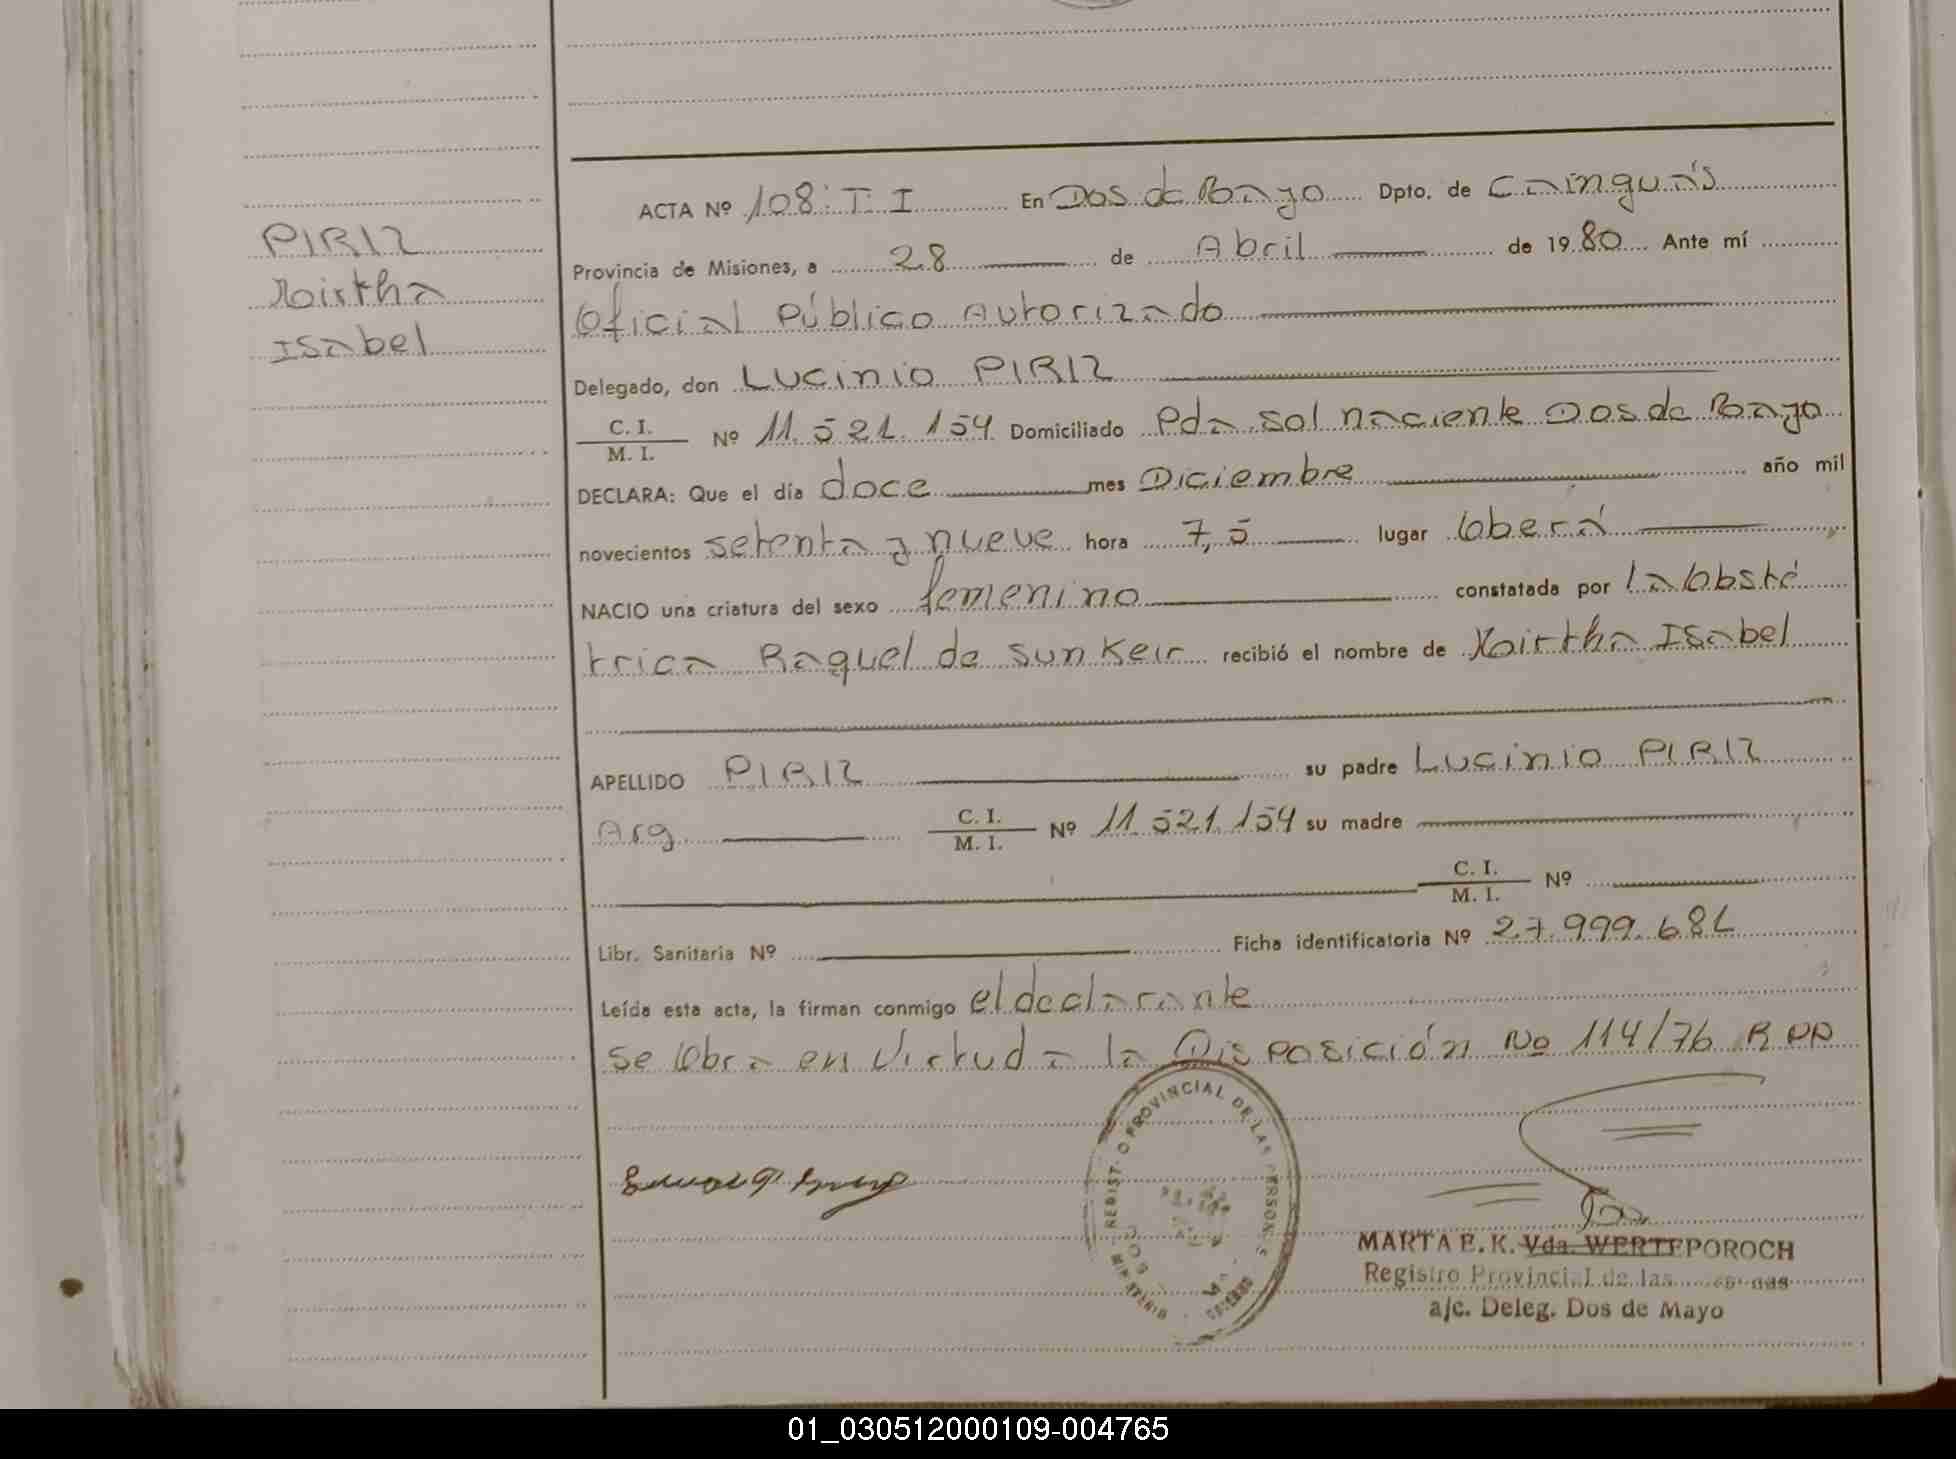 PIRIZ
Mirtha
Isabel
ACTA Nº 108: T: I En Dos de Mayo Dpto. de Cainguás
Provincia de Misiones, a 28 de Abril de 1980 Ante mí
Oficial Público Autorizado
Delegado, don Lucinio PIRIZ
C. I. / M. I. Nº 11.521.154 Domiciliado Pda Sol naciente Dos de Mayo
DECLARA: Que el día doce mes Diciembre año mil
novecientos setenta y nueve hora 7,5 lugar Oberá
NACIO una criatura del sexo femenino constatada por la Obsté
trica Raquel de Sunkeir recibió el nombre de Mirtha Isabel
APELLIDO PIRIZ su padre Lucinio PIRIZ
Arg. C. I. / M. I. Nº 11.521.154 su madre
C. I. / M. I. Nº
Libr. Sanitaria Nº Ficha identificatoria Nº 27.999.681
Leída esta acta, la firman conmigo el declarante
Se Obra en Virtud a la Disposición No 114/76 R PP
REGISTRO PROVINCIAL DE LAS PERSONAS
MARTA E. K. Vda. WERTEPOROCH
Registro Provincial de las
a/c. Deleg. Dos de Mayo
01_030512000109-004765